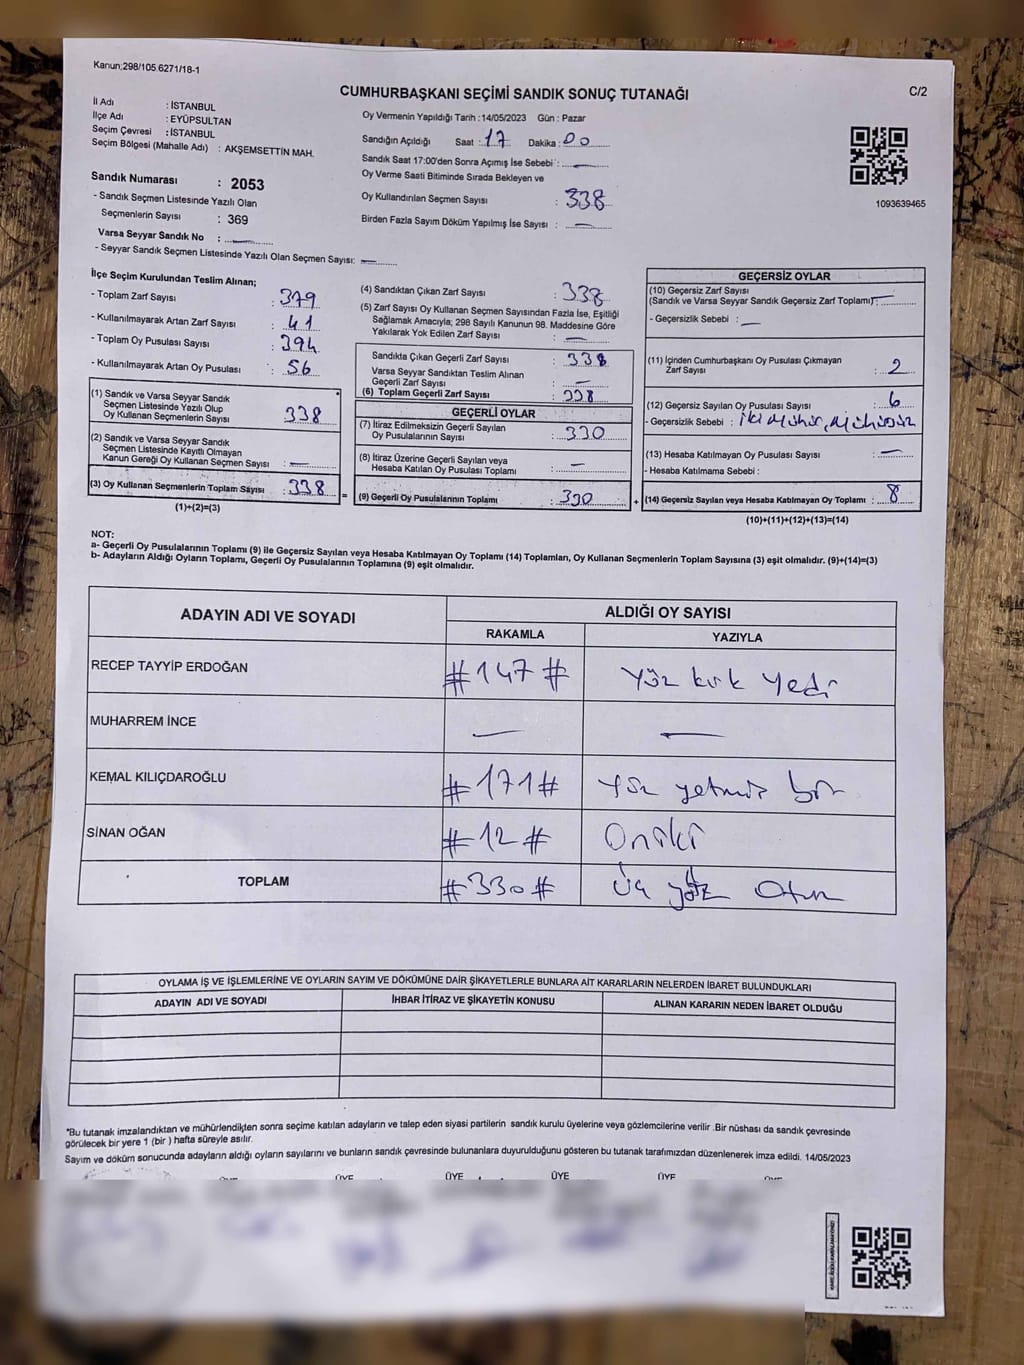 Kanun;298/105.6271/18-1
CUMHURBAŞKANI SEÇİMİ SANDIK SONUÇ TUTANAĞI
C/2
İl Adı : İSTANBUL
İlçe Adı : EYÜPSULTAN
Seçim Çevresi : İSTANBUL
Seçim Bölgesi (Mahalle Adı) : AKŞEMSETTİN MAH.
Sandık Numarası : 2053
- Sandık Seçmen Listesinde Yazılı Olan
Seçmenlerin Sayısı : 369
Varsa Seyyar Sandık No : —
- Seyyar Sandık Seçmen Listesinde Yazılı Olan Seçmen Sayısı: —
Oy Vermenin Yapıldığı Tarih : 14/05/2023 Gün : Pazar
Sandığın Açıldığı Saat : 17 Dakika : 00
Sandık Saat 17:00'den Sonra Açımış İse Sebebi : —
Oy Verme Saati Bitiminde Sırada Bekleyen ve
Oy Kullandırılan Seçmen Sayısı : 338
Birden Fazla Sayım Döküm Yapılmış İse Sayısı : —
1093639465
İlçe Seçim Kurulundan Teslim Alınan;
- Toplam Zarf Sayısı : 379
- Kullanılmayarak Artan Zarf Sayısı : 41
- Toplam Oy Pusulası Sayısı : 394
- Kullanılmayarak Artan Oy Pusulası : 56
(1) Sandık ve Varsa Seyyar Sandık
Seçmen Listesinde Yazılı Olup
Oy Kullanan Seçmenlerin Sayısı : 338
(2) Sandık ve Varsa Seyyar Sandık
Seçmen Listesinde Kayıtlı Olmayan
Kanun Gereği Oy Kullanan Seçmen Sayısı : —
(3) Oy Kullanan Seçmenlerin Toplam Sayısı : 338
(1)+(2)=(3)
=
(4) Sandıktan Çıkan Zarf Sayısı : 338
(5) Zarf Sayısı Oy Kullanan Seçmen Sayısından Fazla İse, Eşitliği
Sağlamak Amacıyla; 298 Sayılı Kanunun 98. Maddesine Göre
Yakılarak Yok Edilen Zarf Sayısı : —
Sandıkta Çıkan Geçerli Zarf Sayısı : 338
Varsa Seyyar Sandıktan Teslim Alınan
Geçerli Zarf Sayısı : —
(6) Toplam Geçerli Zarf Sayısı : 338
GEÇERLİ OYLAR
(7) İtiraz Edilmeksizin Geçerli Sayılan
Oy Pusulalarının Sayısı : 330
(8) İtiraz Üzerine Geçerli Sayılan veya
Hesaba Katılan Oy Pusulası Toplamı : —
(9) Geçerli Oy Pusulalarının Toplamı : 330
+
GEÇERSİZ OYLAR
(10) Geçersiz Zarf Sayısı
(Sandık ve Varsa Seyyar Sandık Geçersiz Zarf Toplamı): —
- Geçersizlik Sebebi : —
(11) İçinden Cumhurbaşkanı Oy Pusulası Çıkmayan
Zarf Sayısı : 2
(12) Geçersiz Sayılan Oy Pusulası Sayısı : 6
- Geçersizlik Sebebi : İki Mühür, Mühürsüz
(13) Hesaba Katılmayan Oy Pusulası Sayısı : —
- Hesaba Katılmama Sebebi :
(14) Geçersiz Sayılan veya Hesaba Katılmayan Oy Toplamı : 8
(10)+(11)+(12)+(13)=(14)
NOT:
a- Geçerli Oy Pusulalarının Toplamı (9) ile Geçersiz Sayılan veya Hesaba Katılmayan Oy Toplamı (14) Toplamları, Oy Kullanan Seçmenlerin Toplam Sayısına (3) eşit olmalıdır. (9)+(14)=(3)
b- Adayların Aldığı Oyların Toplamı, Geçerli Oy Pusulalarının Toplamına (9) eşit olmalıdır.
ADAYIN ADI VE SOYADI
ALDIĞI OY SAYISI
RAKAMLA YAZIYLA
RECEP TAYYİP ERDOĞAN #147# Yüz kırk yedi
MUHARREM İNCE — —
KEMAL KILIÇDAROĞLU #171# Yüz yetmiş bir
SİNAN OĞAN #12# Oniki
TOPLAM #330# Üç yüz Otuz
OYLAMA İŞ VE İŞLEMLERİNE VE OYLARIN SAYIM VE DÖKÜMÜNE DAİR ŞİKAYETLERLE BUNLARA AİT KARARLARIN NELERDEN İBARET BULUNDUKLARI
ADAYIN ADI VE SOYADI İHBAR İTİRAZ VE ŞİKAYETİN KONUSU ALINAN KARARIN NEDEN İBARET OLDUĞU
*Bu tutanak imzalandıktan ve mühürlendikten sonra seçime katılan adayların ve talep eden siyasi partilerin sandık kurulu üyelerine veya gözlemcilerine verilir .Bir nüshası da sandık çevresinde
görülecek bir yere 1 (bir ) hafta süreyle asılır.
Sayım ve döküm sonucunda adayların aldığı oyların sayılarını ve bunların sandık çevresinde bulunanlara duyurulduğunu gösteren bu tutanak tarafımızdan düzenlenerek imza edildi. 14/05/2023
ÜYE ÜYE ÜYE ÜYE